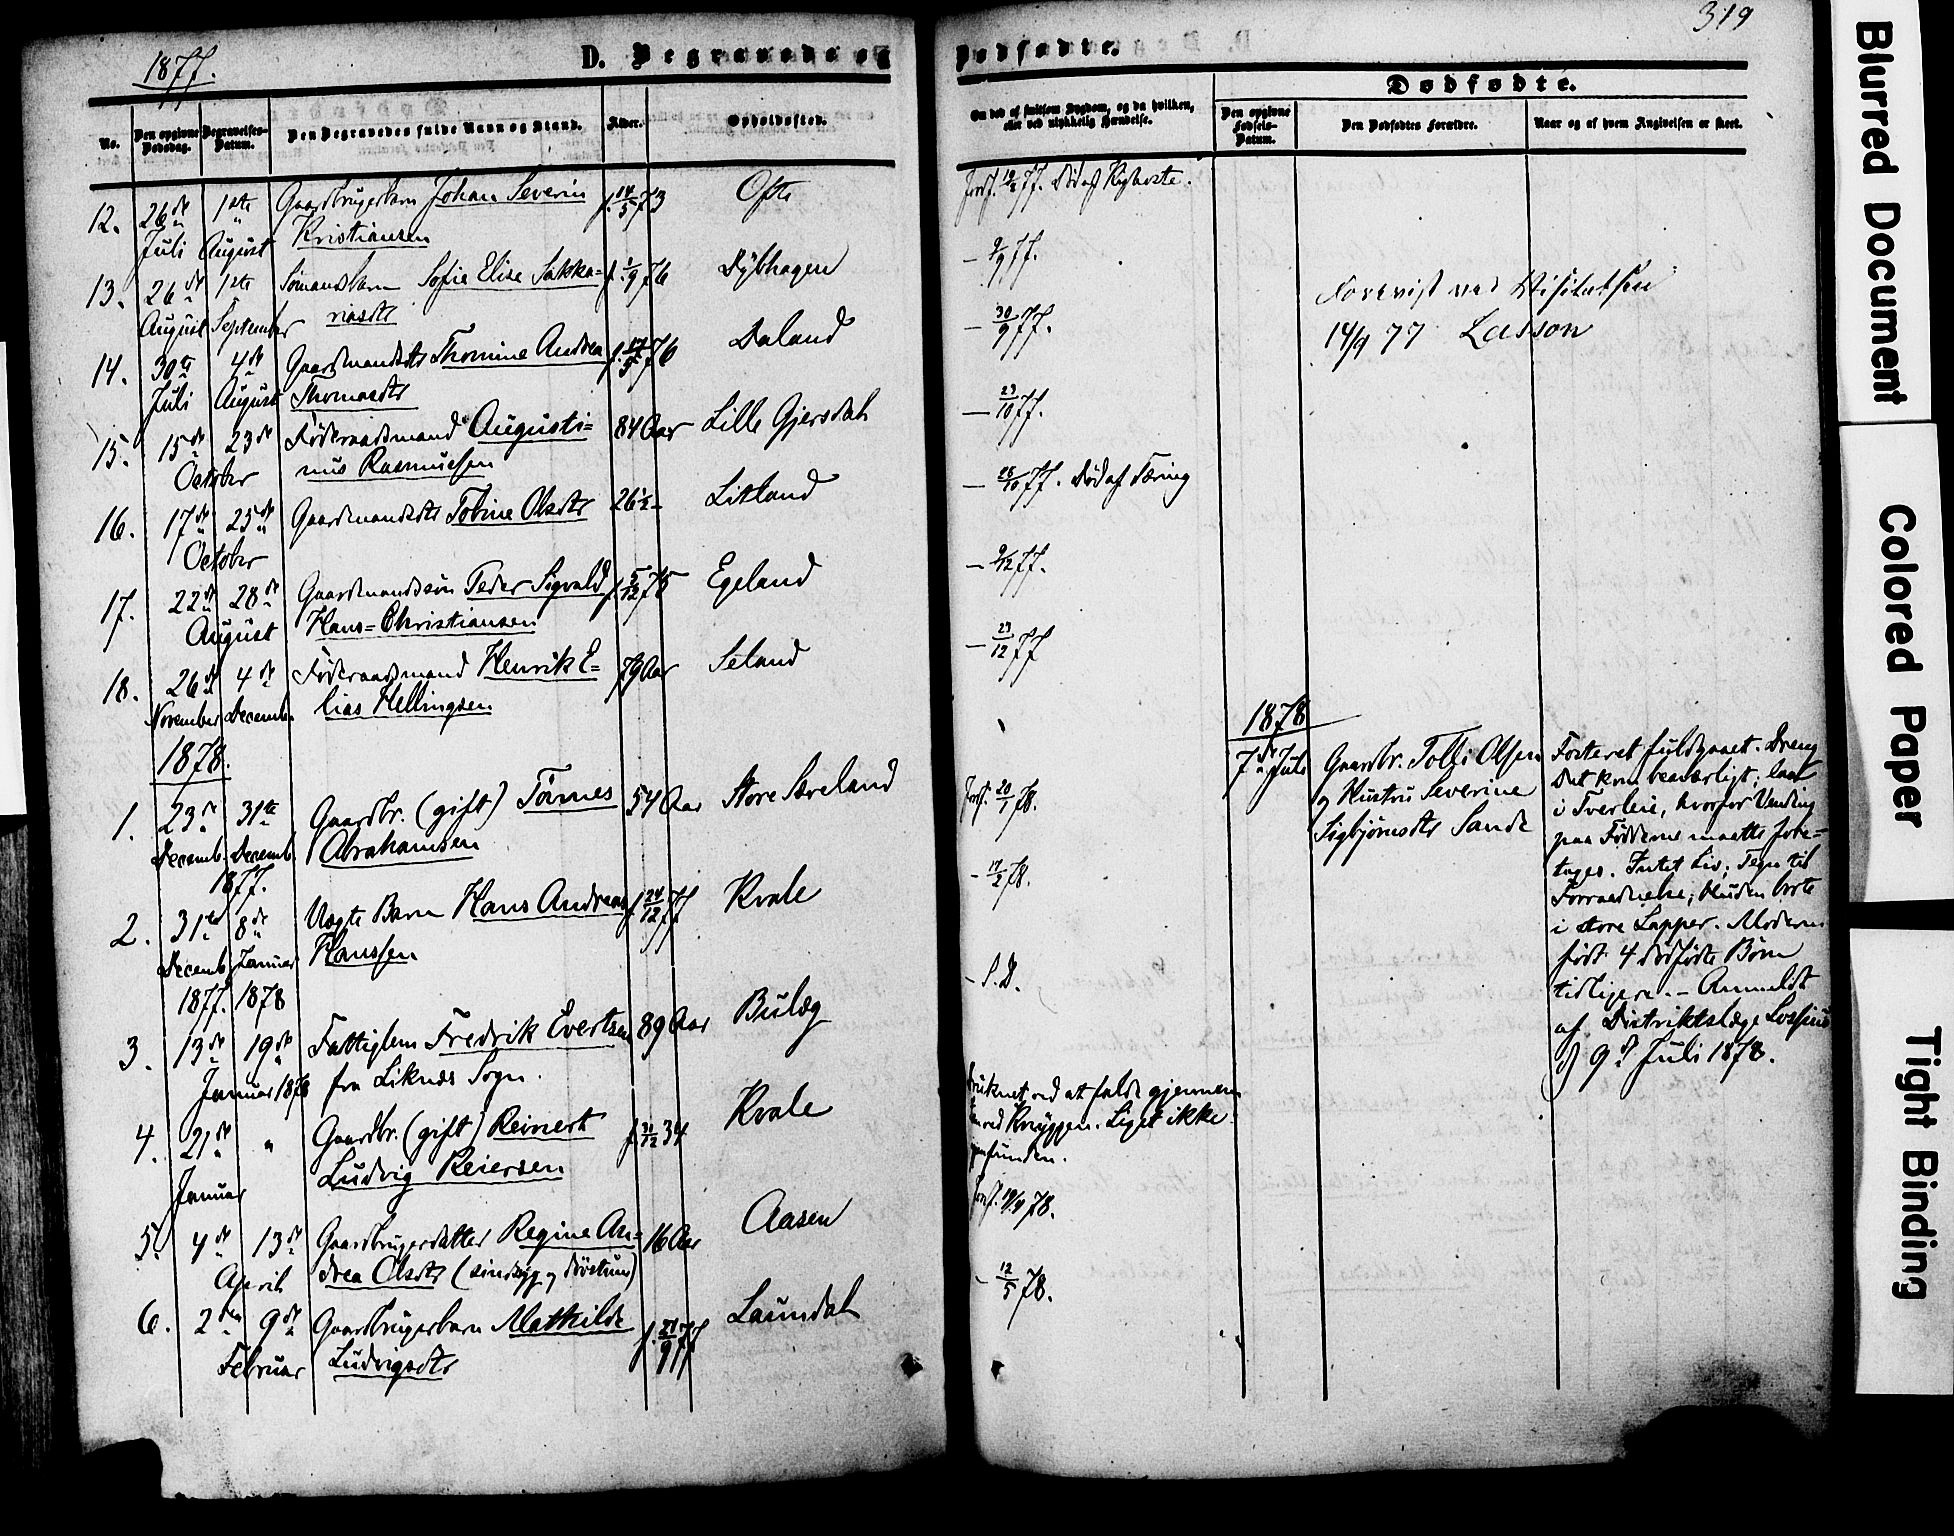 1877.
D. Begravede og
No.
Den opgivne Dødsdag.
Begravelses-Datum.
Den Begravedes fulde Navn og Stand.
Alder.
Opholdssted.
12. 26de 1ste Gaardbrugerbarn Johan Severin f. 14/5 73 Ofte
Juli August Kristiansen
13. 26de 1ste Sømandsbarn Sofie Elise Sakka= f. 1/9 76 Dybhagen
August September riasdtr
14. 30te 4de Gaardmandsdtr Thomine Andrea f. 17/5 76 Daland
Juli August Thomasdtr
15. 15de 23de Føderaadsmand Augusti= 84 Aar Lille Gjersdal
October nus Rasmussen
16. 17de 25de Gaardmandsdtr Tobine Olsdtr 26 1/2 - Litland
October
17. 22de 28de Gaardmandssøn Peder Sigvald f. 5/12 75 Egeland
August Hans=Christiansen
18. 26de 4de Føderaadsmand Henrik E= 79 Aar Seland
November Decemb. lias Hellingsen
1878.
1. 23de 31te Gaardbr. (gift) Tønnes 54 Aar Store Sæveland
Decemb. Decemb. Abrahamsen
1877.
2. 31te 8de Uægte Barn Hans Andreas f. 24/12 77 Kvale
Decemb. Januar Hanssen
1877. 1878
3. 13de 19de Fattiglem Fredrik Evertsen 89 Aar Bulæg
Januar 1878 fra Liknæs Sogn.
4. 21de " Gaardbr. (gift) Reinert f. 31/12 34 Kvale
Januar Ludvig Reiersen
5. 4de 13de Gaardbrugerdatter Regine An= 16 Aar Aasen
April drea Olsdtr (sindssyg og døvstum)
6. 2den 9de Gaardbrugerbarn Mathilde f. 21/9 77 Laundal
Februar Ludvigsdtr
319
Dødfødte.
Om død af smitsom Sygdom, og da hvilken,
eller ved ulykkelig Hændelse.
Dødfødte.
Den opgivne Fødsels-Datum.
Den Dødfødtes Forældre.
Naar og af hvem Angivelsen er skeet.
Jordf. 19/8 77. Død af Kighoste.
- 9/9 77.
- 30/9 77.
- 23/10 77.
- 28/10 77. Død af Tæring
- 9/12 77.
- 23/12 77
Forevist ved Visitatsen
14/9 77 Lasson
Jordf. 20/1 78.
- 17/2 78.
- S.D.
Druknet ved at falde gjennem
ved Knyggen. Liget ikke
gjenfunden.
Jordf. 19/4 78.
- 12/5 78.
1878
7de Juli
Gaardbr. Tolli Olsen
og Hustru Severine
Sigbjørnsdtr Sande
Fosteret fuldbaaret. Dreng
Det kom besværligt; laae
i Tverleie, hvorfor Vending
paa Fødderne maatte fore=
tages. Intet Liv; Tegn til
Forraadnelse; Huden borte
i store Lapper. Moderen
født 4 dødfødte Børn
tidligere. - Anmeldt
af Distriktslæge Lossius
d 9de Juli 1878.
Blurred Document
Colored Paper
Tight Binding